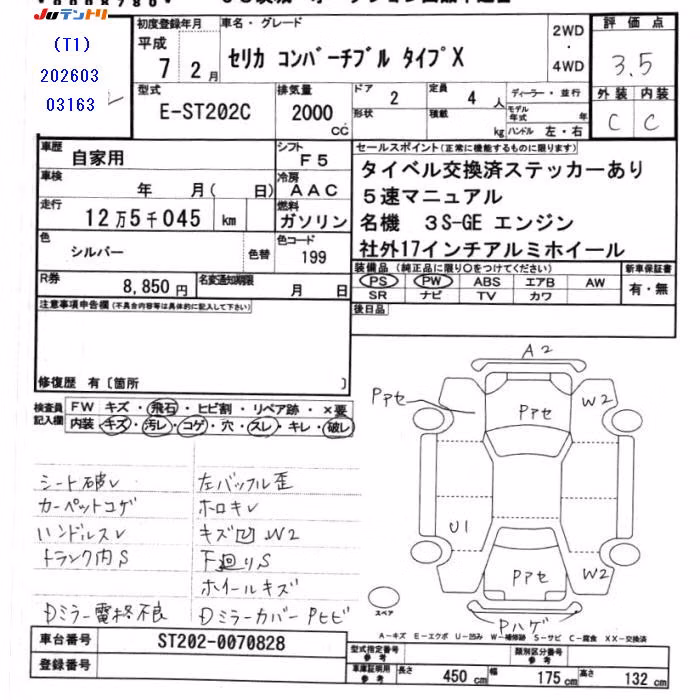 JUテントリ
(T1)
202603
03163
初度登録年月
平成 7 2月
車名・グレード
セリカ コンバーチブル タイプX
2WD
・
4WD
評価点
3.5
外装 内装
C C
型式
E-ST202C
排気量
2000
CC
ドア
2
定員
4 人
形状
積載
kg
ディーラー・並行
モデル年式 年
ハンドル 左・右
車歴
自家用
シフト
F5
車検
年 月( 日)
冷房
AAC
走行
12万5千045 km
燃料
ガソリン
色
シルバー
色替
色コード
199
R券
8,850円
名変通知期限
月 日
セールスポイント(正常に機能するものに限ります)
タイベル交換済ステッカーあり
5速マニュアル
名機 3S-GE エンジン
社外17インチアルミホイール
装備品(純正品に限り○をつけてください)
PS PW ABS エアB AW
SR ナビ TV カワ
新車保証書
有・無
後日品
注意事項申告欄(不具合内容等は具体的に記入して下さい)
修復歴 有〔箇所 〕
検査員記入欄
FW キズ・飛石・ヒビ割・リペア跡・×要
内装 キズ・汚レ・コゲ・穴・スレ・キレ・破レ
シート破レ
カーペットコゲ
ハンドルスレ
トランク内S
Dミラー電格不良
左バッフル歪
ホロキレ
キズ凹W2
下廻りS
ホイールキズ
Dミラーカバー Pヒビ
A2
Pアセ
Pアセ
W2
U1
Pアセ
W2
Pハゲ
スペア
A-キズ E-エクボ U-凹み W-補修跡 S-サビ C-腐食 XX-交換済
車台番号
ST202-0070828
登録番号
型式指定番号 参考
類別区分番号 参考
車庫証明用 参考
長さ 450cm 幅 175cm 高さ 132cm